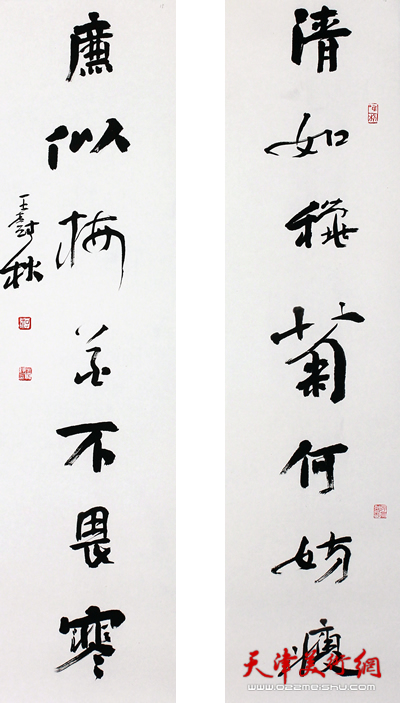 清如穐菊何妨瘦
廉似梅花不畏寒
王樹秋
天津美術網
www.022meishu.com